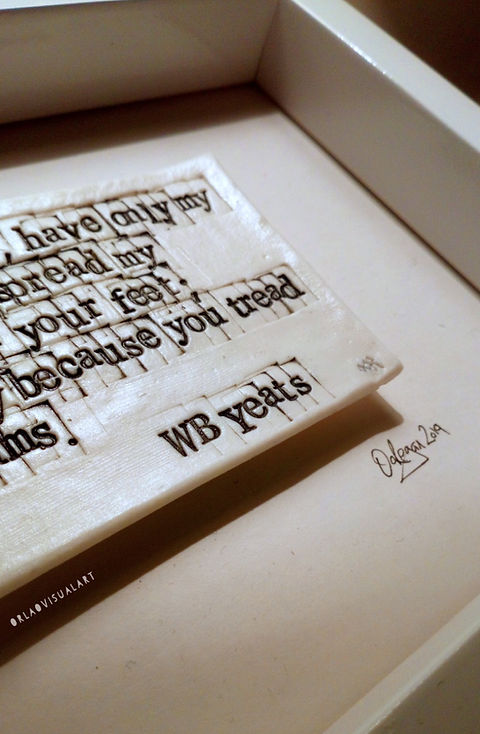 , have only my
spread my
your feet:
because you tread
ms.
WB Yeats
2019
ORLAOVISUALART